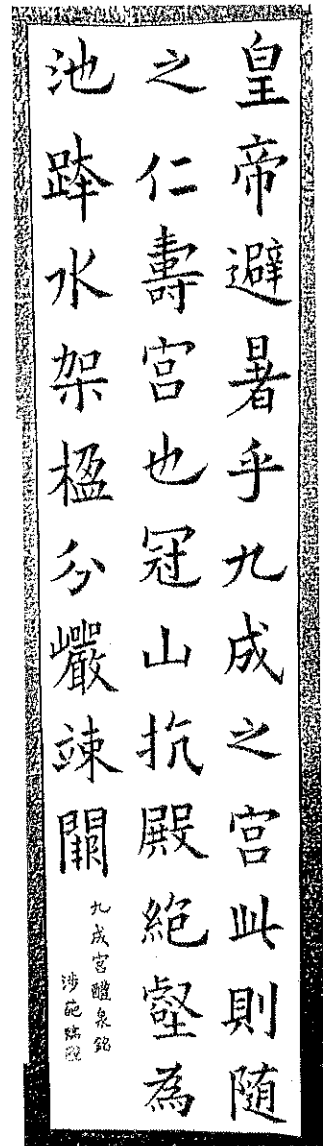 皇帝避暑乎九成之宮此則随
之仁壽宮也冠山抗殿絶壑為
池跨水架楹分巖竦闕
九成宮醴泉銘
臨